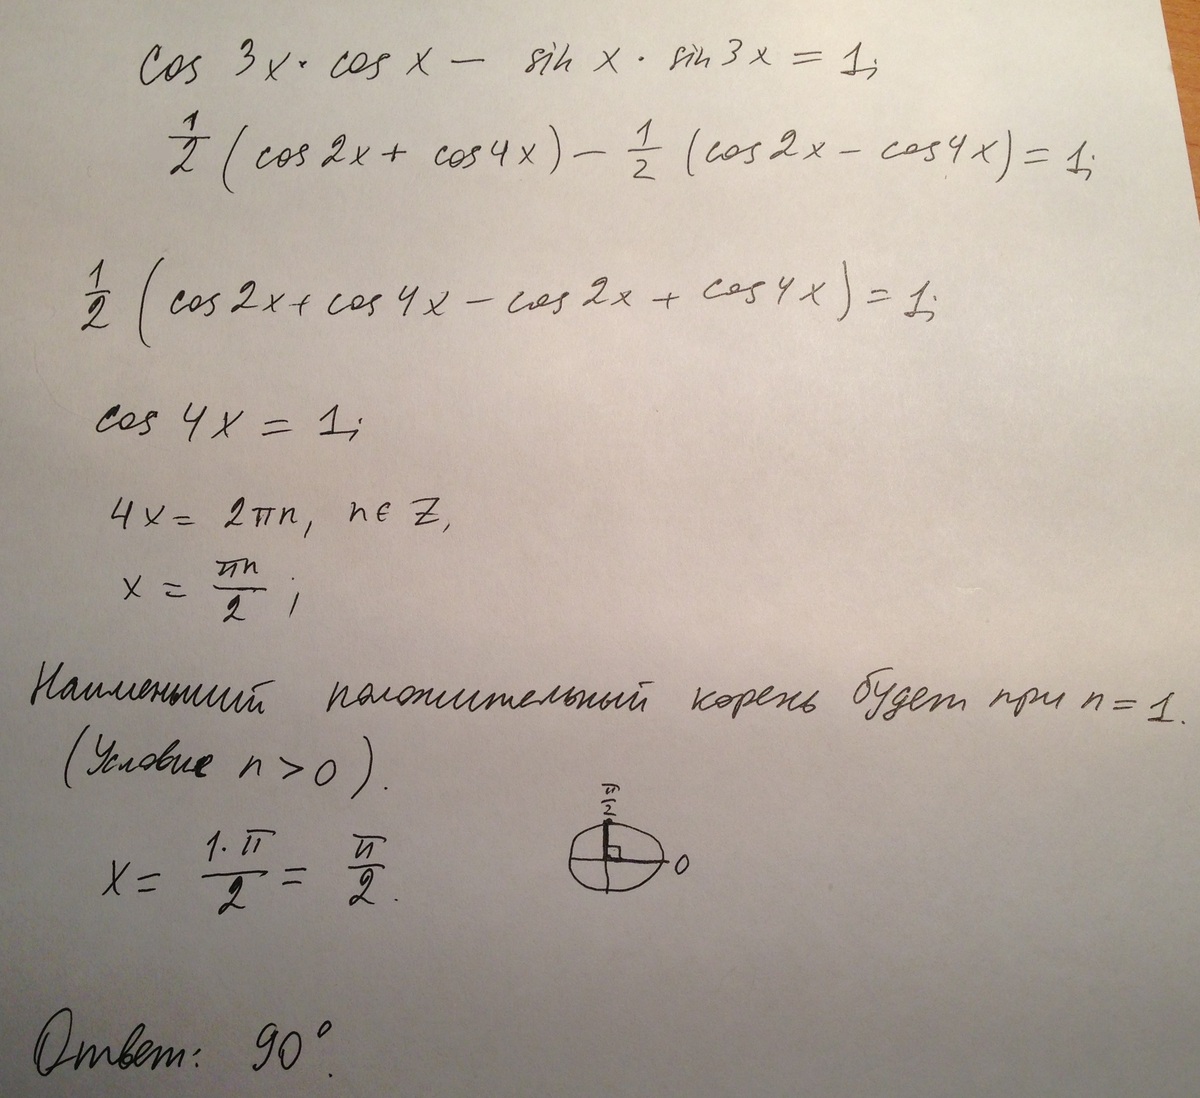 cos 3x · cos x − sin x · sin 3x = 1;
1/2 (cos 2x + cos 4x) − 1/2 (cos 2x − cos 4x) = 1;
1/2 (cos 2x + cos 4x − cos 2x + cos 4x) = 1;
cos 4x = 1;
4x = 2πn, n ∈ Z,
x = πn/2 ;
Наименьший положительный корень будет при n = 1.
(Условие n > 0).
π/2
x = 1·π/2 = π/2.
0
Ответ: 90°.